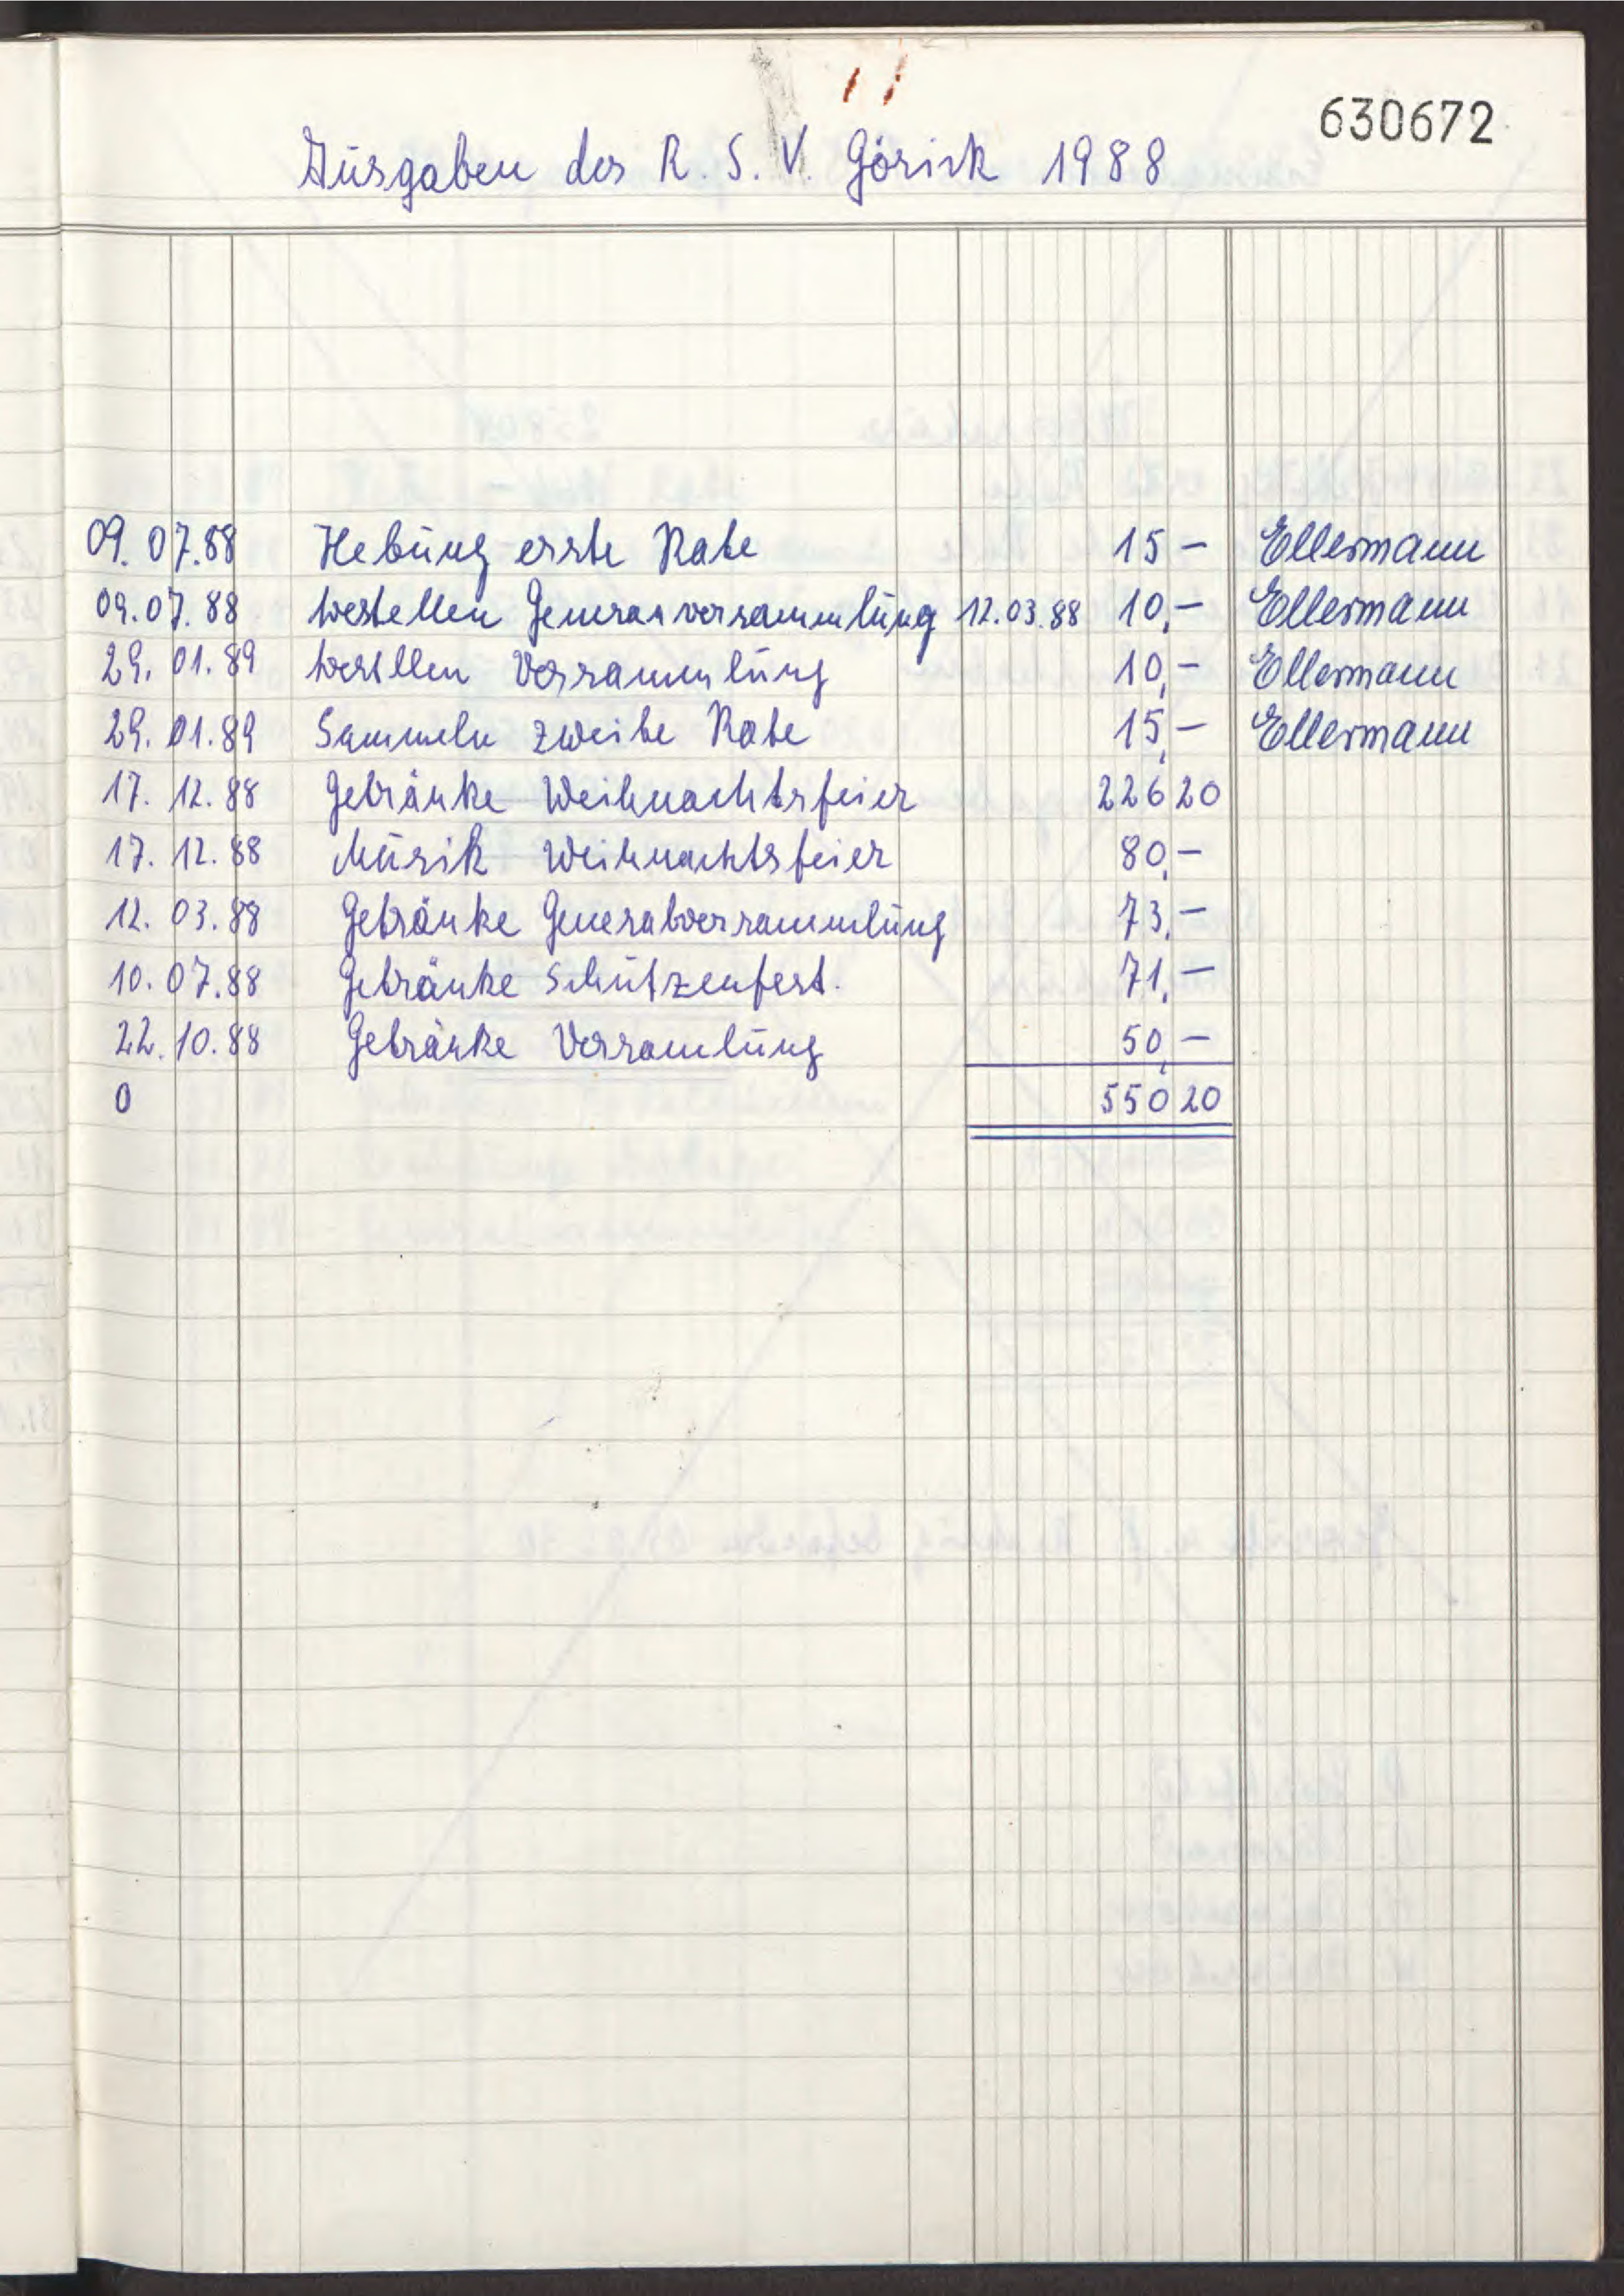 630672
Ausgaben des R. S. V. Görick 1988
09.07.88 Hebung erste Rate 15 – Ellermann
09.07.88 bestellen Generalversammlung 12.03.88 10,– Ellermann
29.01.89 bestllen Versammlung 10,– Ellermann
29.01.89 Sammeln zweite Rate 15,– Ellermann
17.12.88 Getränke Weihnachtsfeier 226 20
17.12.88 Musik Weihnachtsfeier 80,–
12.03.88 Getränke Generalversammlung 73,–
10.07.88 Getränke Schützenfest. 71,–
22.10.88 Getränke Versamlung 50,–
0 550 20